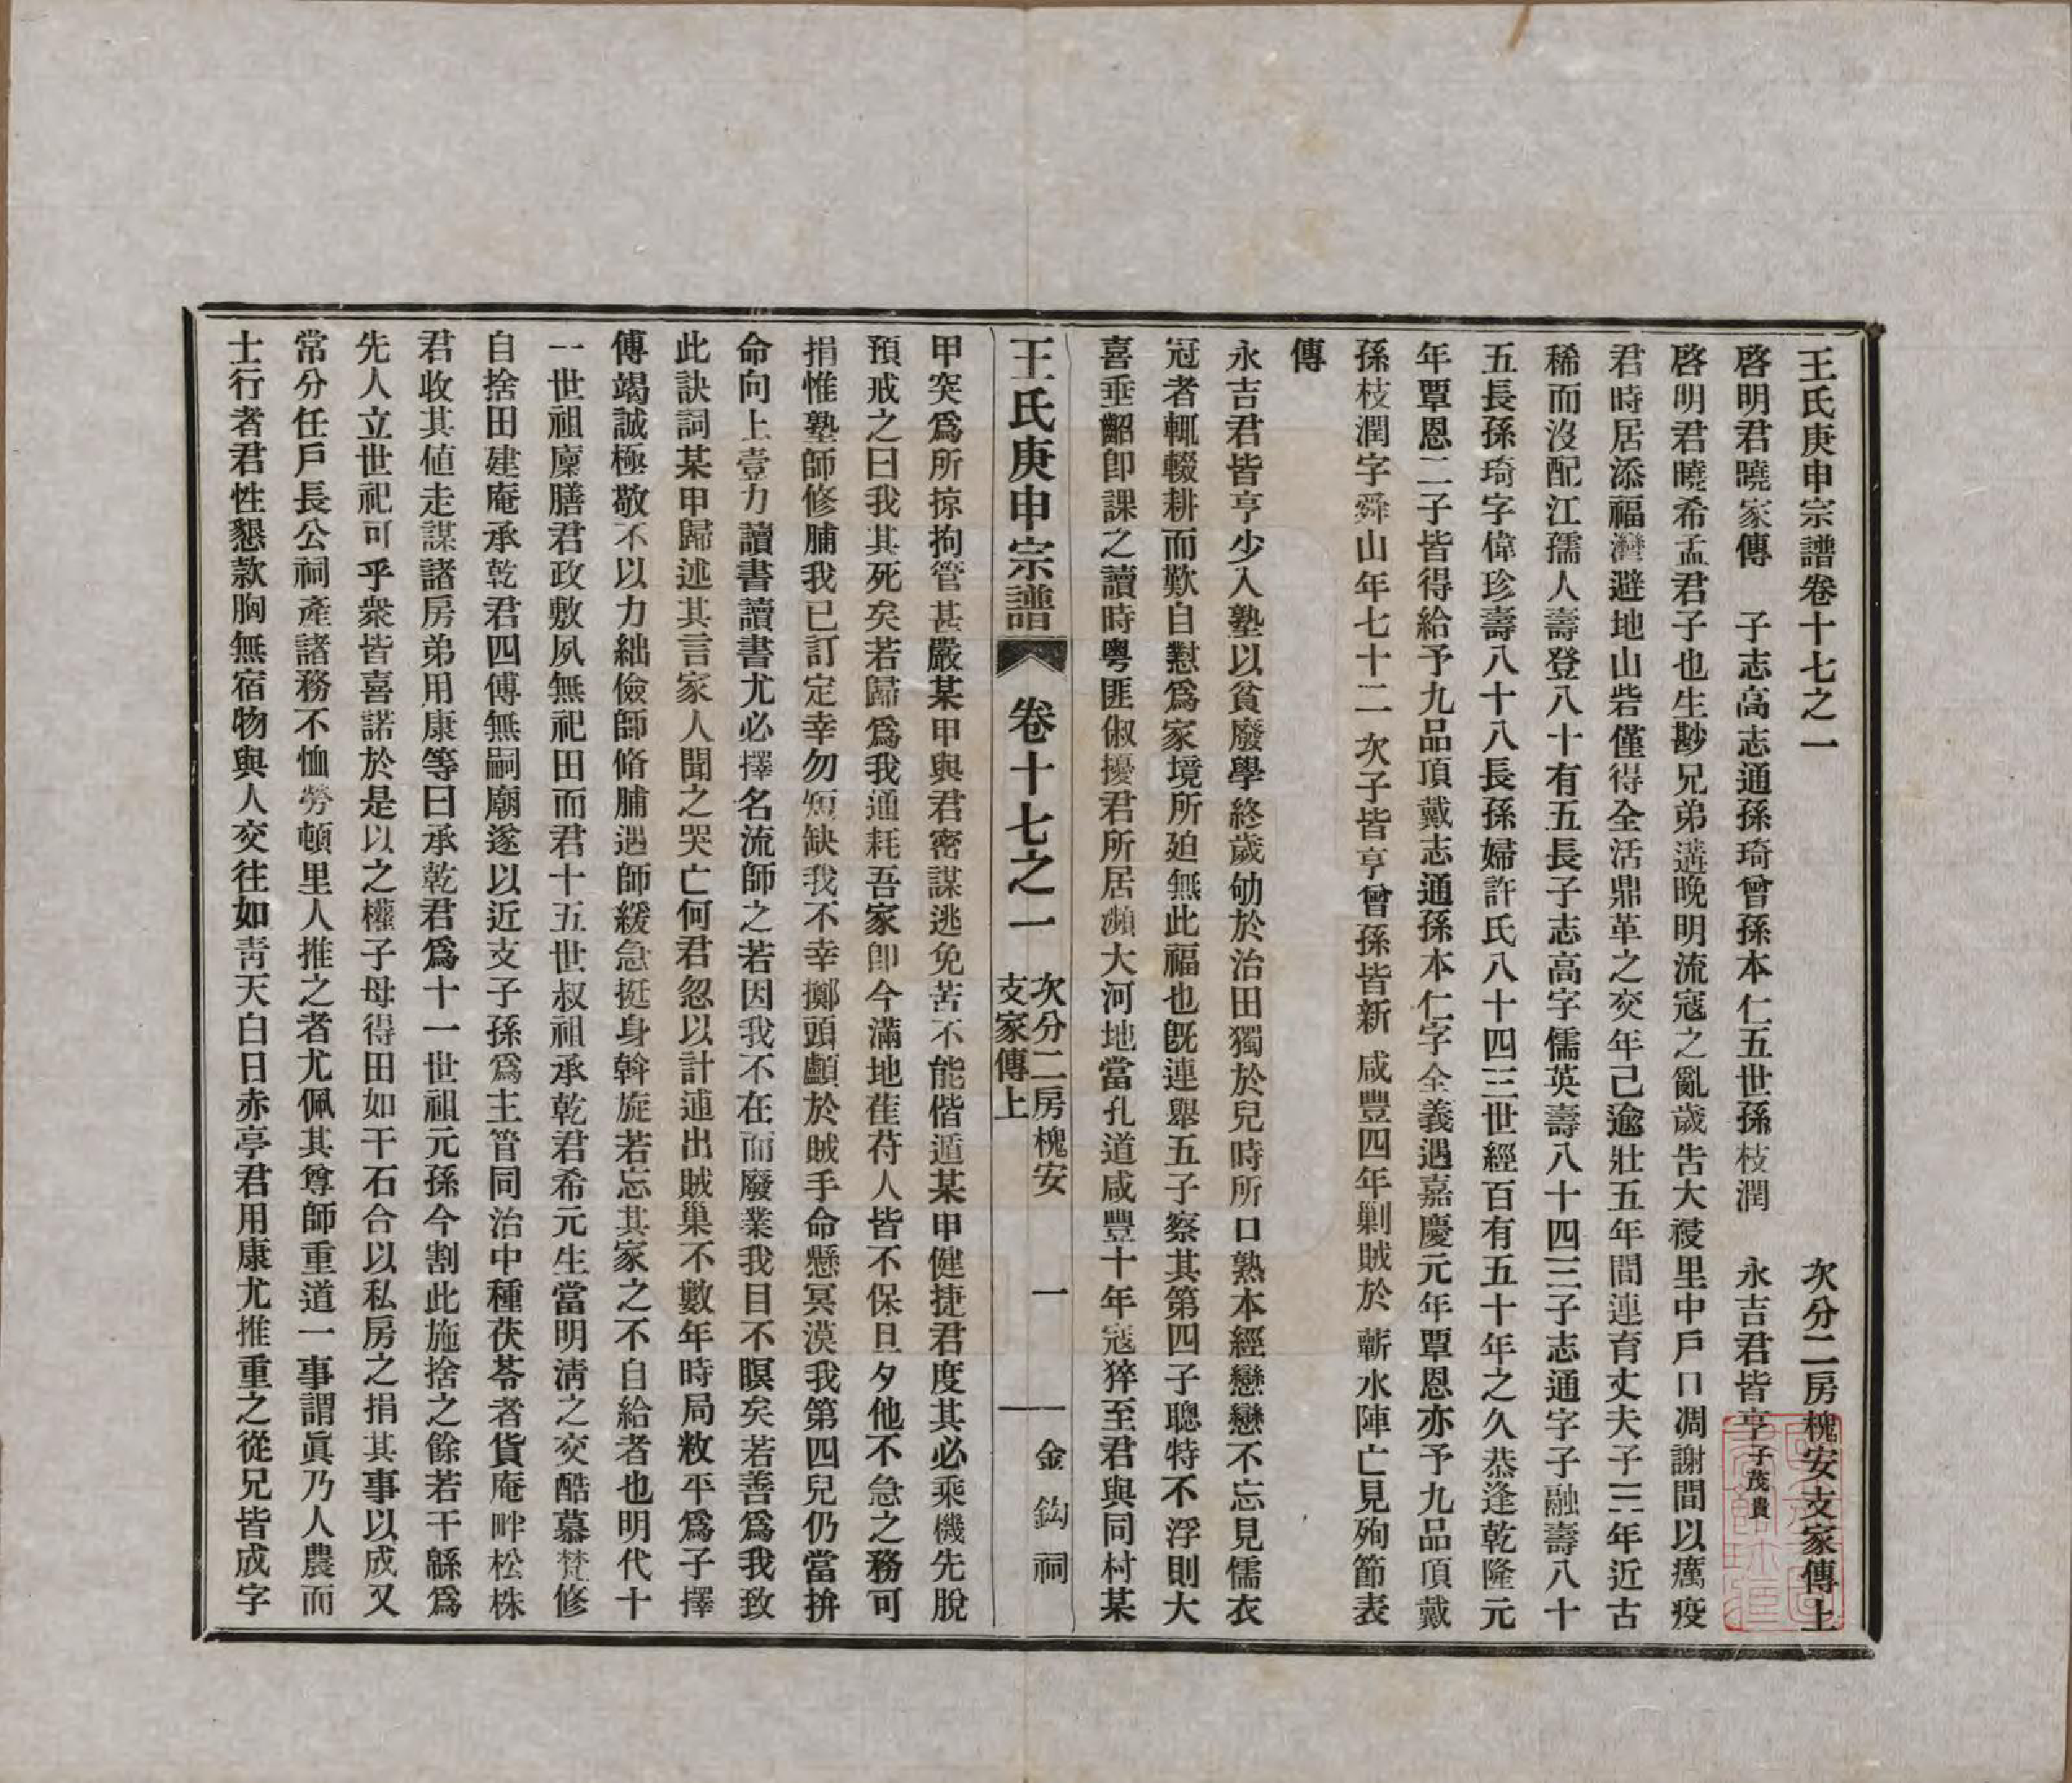 王氏庚申宗譜卷十七之一　次分二房槐安支家傳上
啓明君曉家傳　子志高志通孫琦曾孫本仁五世孫枝潤　永吉君皆亨子茂貴
啓明君曉希孟君子也生尠兄弟遘晚明流寇之亂歲告大祲里中戶口凋謝間以癘疫
君時居添福灣避地山砦僅得全活鼎革之交年已逾壯五年間連育丈夫子三年近古
稀而沒配江孺人壽登八十有五長子志高字儒英壽八十四三子志通字子融壽八十
五長孫琦字偉珍壽八十八長孫婦許氏八十四三世經百有五十年之久恭逢乾隆元
年覃恩二子皆得給予九品頂戴志通孫本仁字全義遇嘉慶元年覃恩亦予九品頂戴
孫枝潤字舜山年七十二次子皆亨曾孫皆新咸豐四年剿賊於蘄水陣亡見殉節表
傳
永吉君皆亨少入塾以貧廢學終歲劬於治田獨於兒時所口熟本經戀戀不忘見儒衣
冠者輒輟耕而歎自懟爲家境所廹無此福也旣連舉五子察其第四子聰特不浮則大
喜垂齠卽課之讀時粤匪俶擾君所居瀕大河地當孔道咸豐十年寇猝至君與同村某
王氏庚申宗譜　卷十七之一　次分二房槐安支家傳上　一　金鈎祠
甲突爲所掠拘管甚嚴某甲與君密謀逃免苦不能偕遁某甲健捷君度其必乘機先脫
預戒之曰我其死矣若歸爲我通耗吾家卽今滿地萑苻人皆不保旦夕他不急之務可
捐惟塾師修脯我已訂定幸勿短缺我不幸擲頭顱於賊手命懸冥漠我第四兒仍當拚
命向上壹力讀書讀書尤必擇名流師之若因我不在而廢業我目不瞑矣若善爲我致
此訣詞某甲歸述其言家人聞之哭亡何君忽以計逋出賊巢不數年時局敉平爲子擇
傅竭誠極敬不以力絀儉師脩脯遇師緩急挺身斡旋若忘其家之不自給者也明代十
一世祖廩膳君政敷夙無祀田而君十五世叔祖承乾君希元生當明清之交酷慕梵修
自捨田建庵承乾君四傅無嗣廟遂以近支子孫爲主管同治中種茯苓者貨庵畔松株
君收其値走謀諸房弟用康等曰承乾君爲十一世祖元孫今割此施捨之餘若干緜爲
先人立世祀可乎衆皆喜諾於是以之權子母得田如干石合以私房之捐其事以成又
常分任戶長公祠產諸務不恤勞頓里人推之者尤佩其尊師重道一事謂眞乃人農而
士行者君性懇款胸無宿物與人交往如靑天白日赤亭君用康尤推重之從兄皆成字